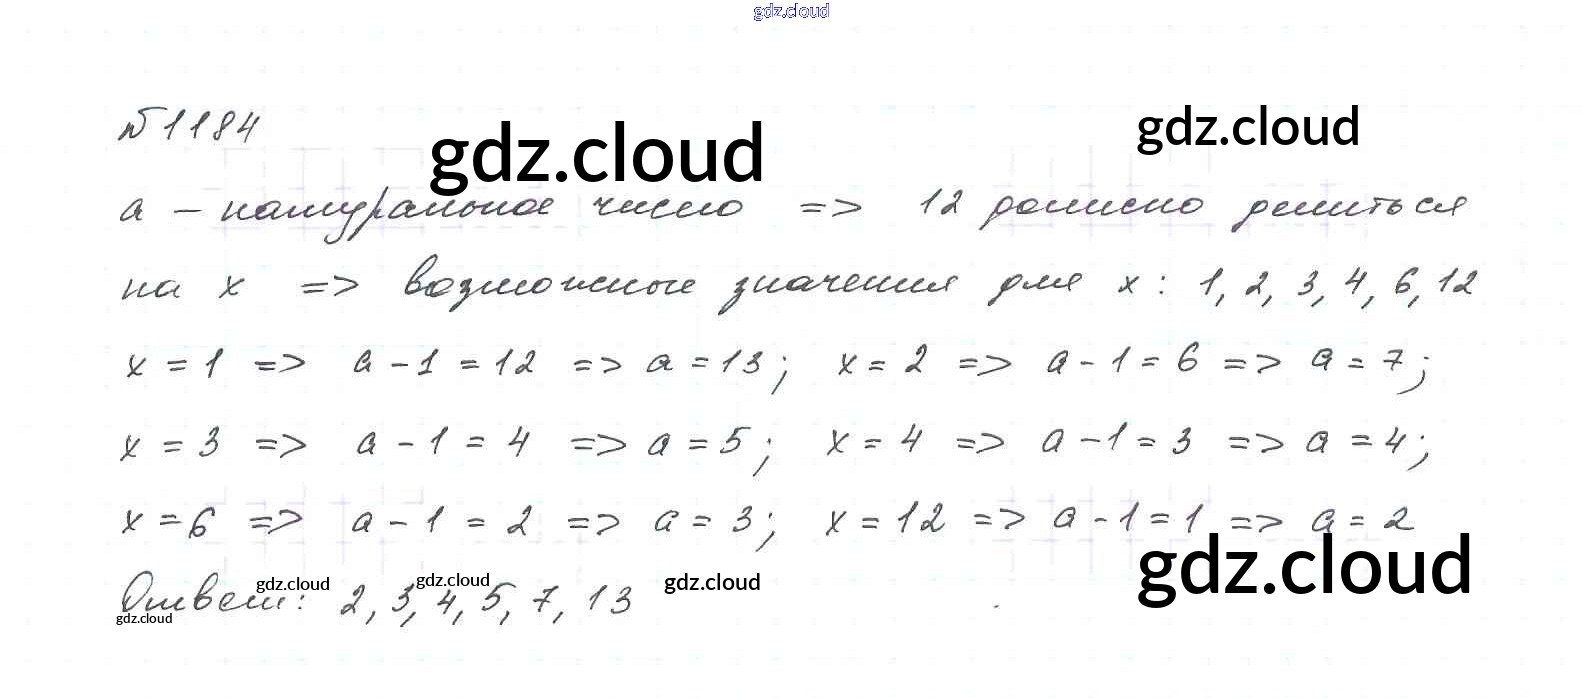 gdz.cloud
№1184
gdz.cloud
gdz.cloud
a – натуральное число => 12 должно делиться
на x => возможные значения для x: 1, 2, 3, 4, 6, 12
x = 1 => a - 1 = 12 => a = 13; x = 2 => a - 1 = 6 => a = 7;
x = 3 => a - 1 = 4 => a = 5; x = 4 => a - 1 = 3 => a = 4;
x = 6 => a - 1 = 2 => a = 3; x = 12 => a - 1 = 1 => a = 2
gdz.cloud
Ответ: 2, 3, 4, 5, 7, 13
gdz.cloud
gdz.cloud
gdz.cloud
gdz.cloud